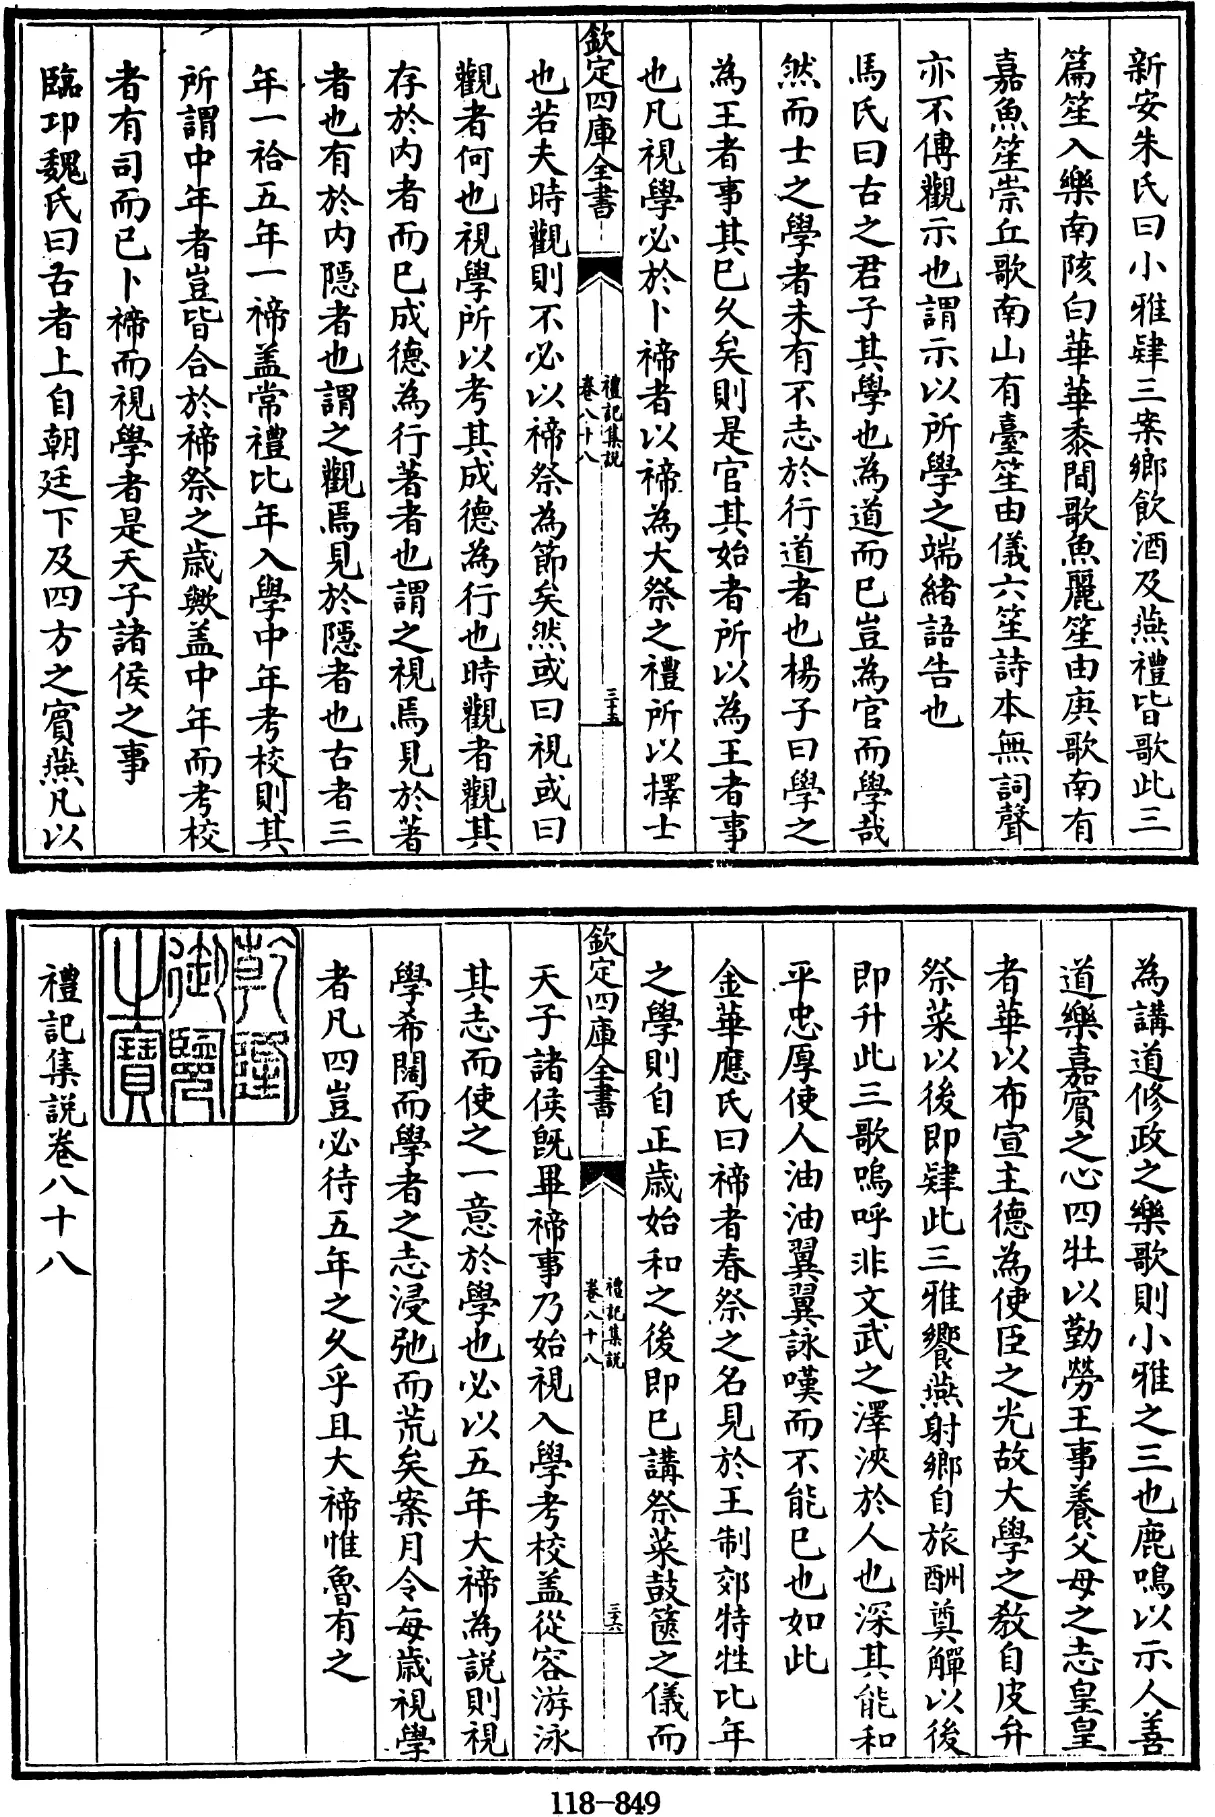 新安朱氏曰小雅肄三案鄉飲酒及燕禮皆歌此三
篇笙入樂南陔白華華黍間歌魚麗笙由庚歌南有
嘉魚笙崇丘歌南山有臺笙由儀六笙詩本無詞聲
亦不傳觀示也謂示以所學之端緒語告也
馬氏曰古之君子其學也為道而已豈為官而學哉
然而士之學者未有不志於行道者也楊子曰學之
為王者事其已久矣則是官其始者所以為王者事
也凡視學必於卜禘者以禘為大祭之禮所以擇士
欽定四庫全書
禮記集説
卷八十八
三十五
也若夫時觀則不必以禘祭為節矣然或曰視或曰
觀者何也視學所以考其成德為行也時觀者觀其
存於内者而已成德為行著者也謂之視焉見於著
者也有於内隱者也謂之觀焉見於隱者也古者三
年一祫五年一禘盖常禮比年入學中年考校則其
所謂中年者豈皆合於禘祭之歲歟盖中年而考校
者有司而已卜禘而視學者是天子諸侯之事
臨卭魏氏曰古者上自朝廷下及四方之賓燕凡以
為講道修政之樂歌則小雅之三也鹿鳴以示人善
道樂嘉賓之心四牡以勤勞王事養父母之志皇皇
者華以布宣主德為使臣之光故大學之教自皮弁
祭菜以後即肄此三雅饗燕射鄉自旅酬奠觶以後
即升此三歌嗚呼非文武之澤浹於人也深其能和
平忠厚使人油油翼翼詠嘆而不能已也如此
金華應氏曰禘者春祭之名見於王制郊特牲比年
之學則自正歲始和之後即已講祭菜鼓篋之儀而
欽定四庫全書
禮記集説
卷八十八
三十六
天子諸侯旣畢禘事乃始視入學考校盖從容游泳
其志而使之一意於學也必以五年大禘為説則視
學希闊而學者之志浸弛而荒矣案月令每歲視學
者凡四豈必待五年之久乎且大禘惟魯有之
乾隆
御覽
之寶
禮記集説卷八十八
118-849